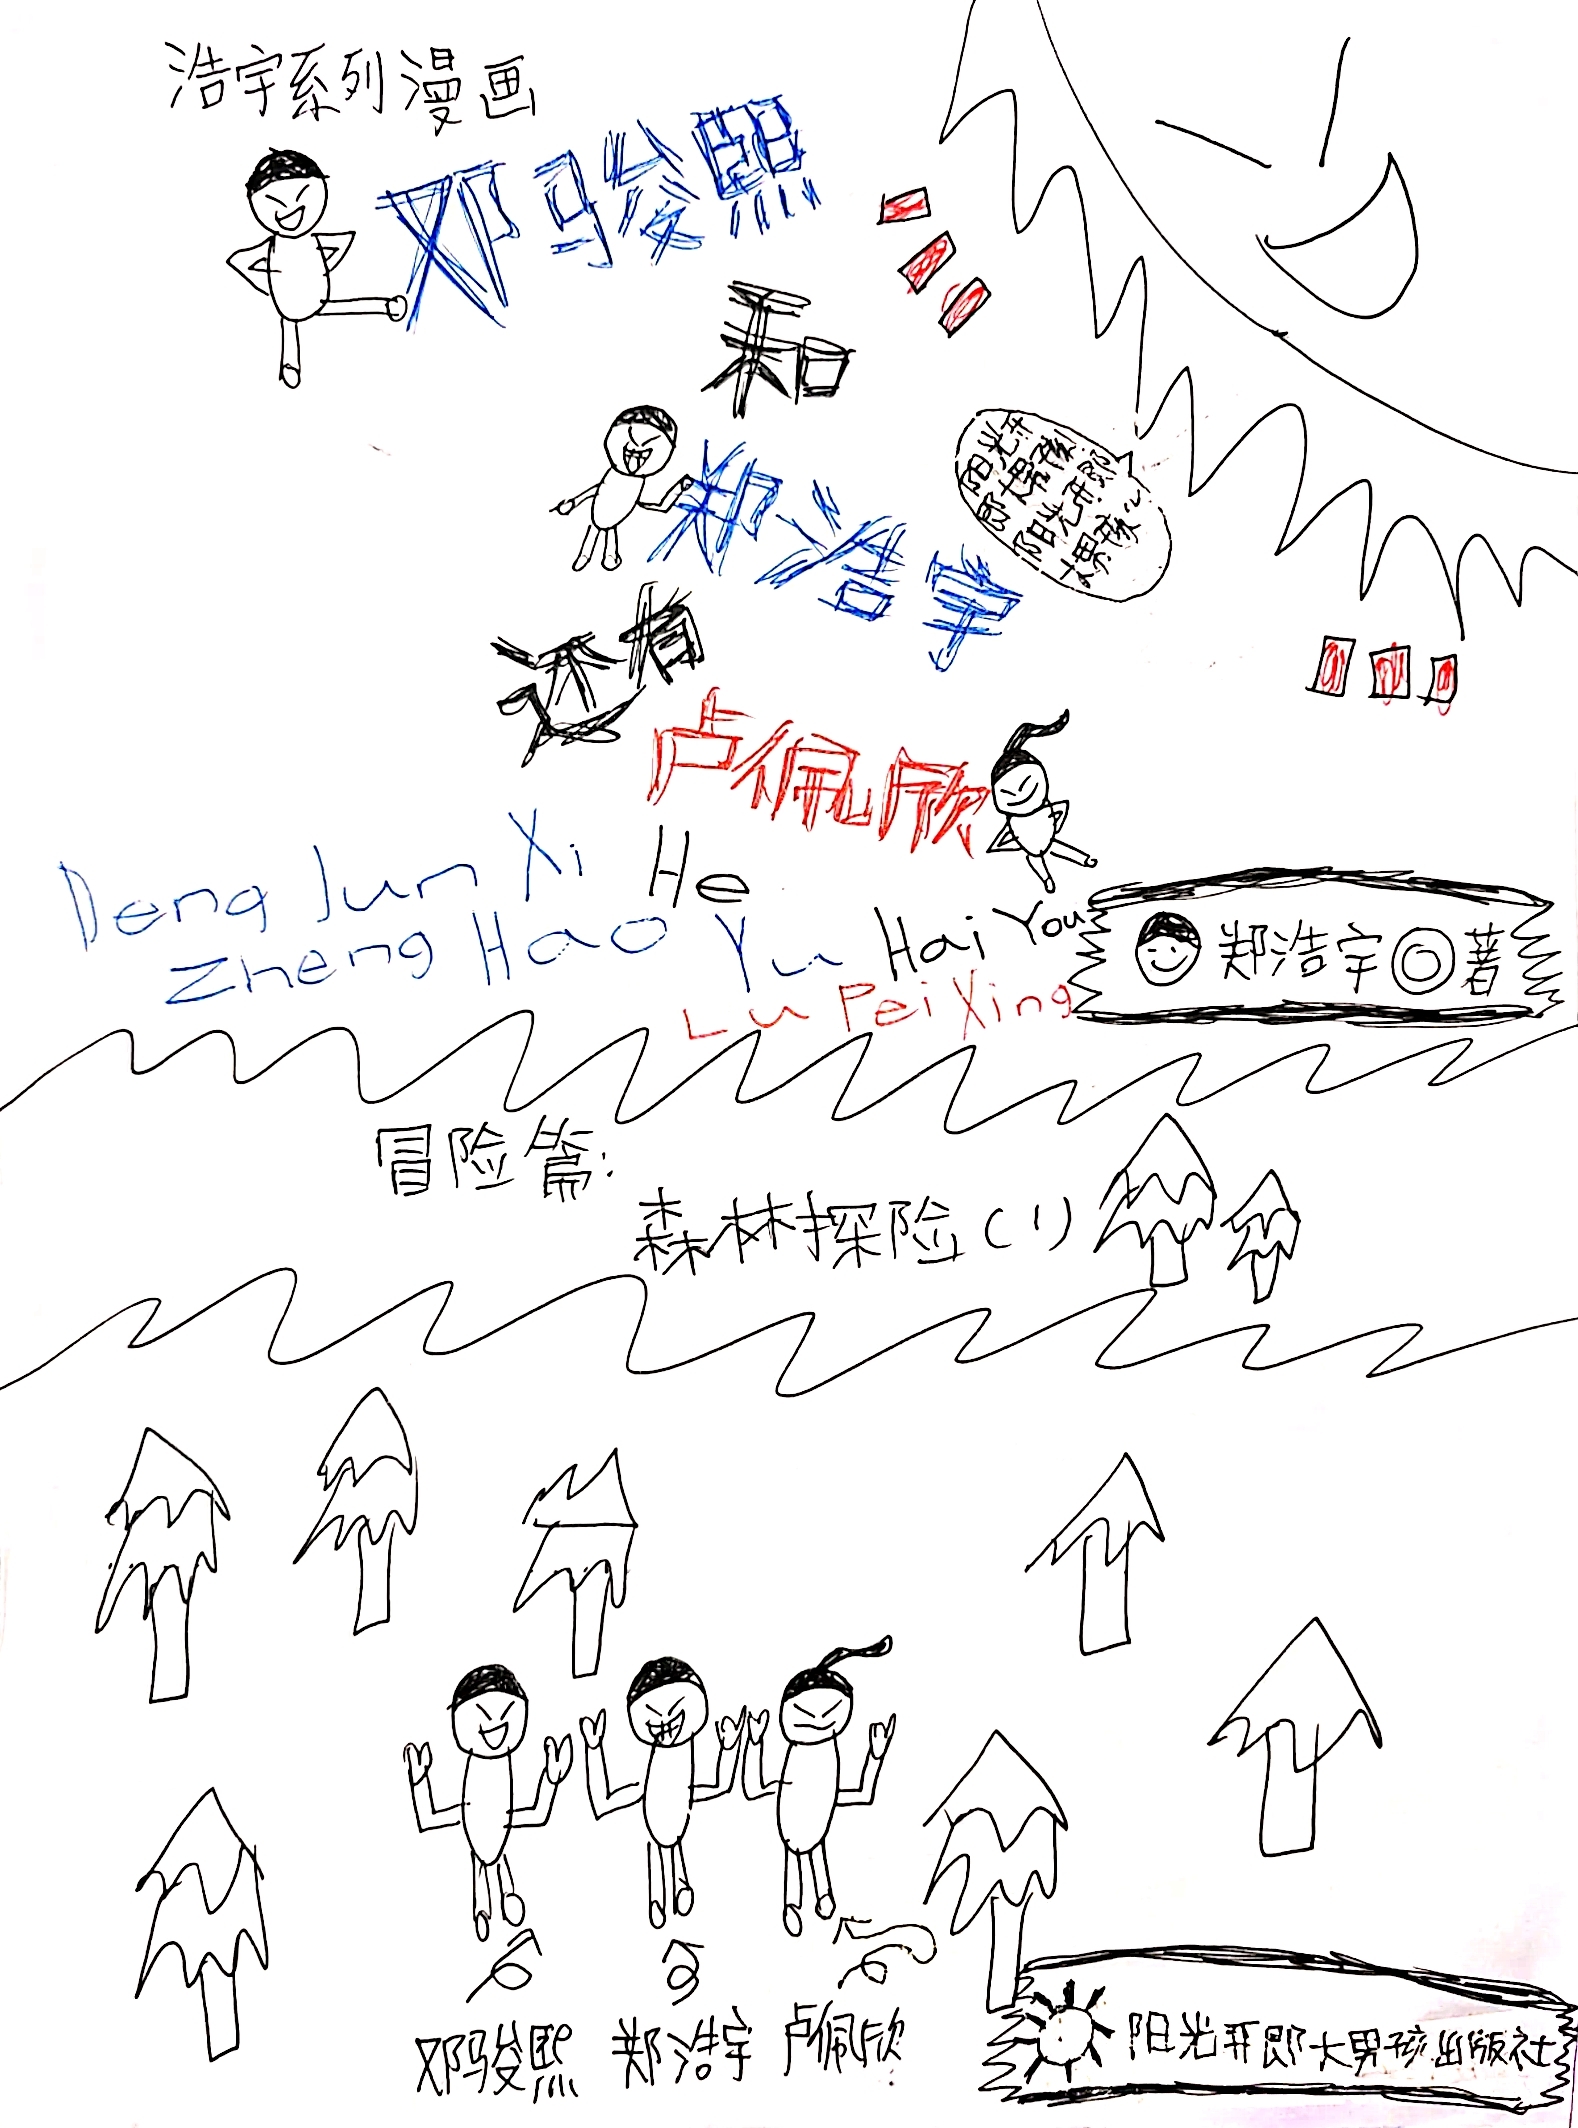 浩宇系列漫画
邓骏熙
和
郑浩宇
还有
卢佩欣
Deng Jun Xi He
Zheng Hao Yu Hai You
Lu Pei Xing
郑浩宇◎著
冒险篇:
森林探险(1)
邓骏熙 郑浩宇 卢佩欣
阳光开郎大男孩出版社